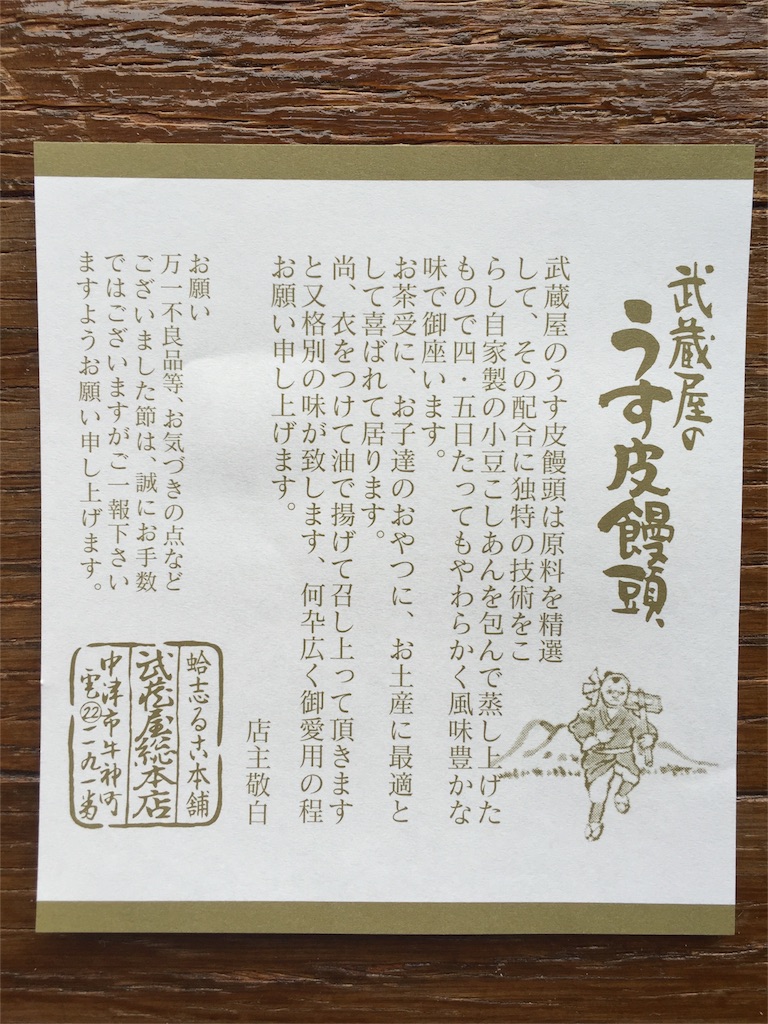 武蔵屋の
うす皮饅頭
武蔵屋のうす皮饅頭は原料を精選
して、その配合に独特の技術をこ
らし自家製の小豆こしあんを包んで蒸し上げた
もので四・五日たってもやわらかく風味豊かな
味で御座います。
お茶受に、お子達のおやつに、お土産に最適と
して喜ばれて居ります。
尚、衣をつけて油で揚げて召し上って頂きます
と又格別の味が致します、何卆広く御愛用の程
お願い申し上げます。
店主敬白
お願い
万一不良品等、お気づきの点など
ございました節は、誠にお手数
ではございますがご一報下さい
ますようお願い申し上げます。
蛤志るこ本舗
武蔵屋総本店
中津市牛神町
電㉒二九一番